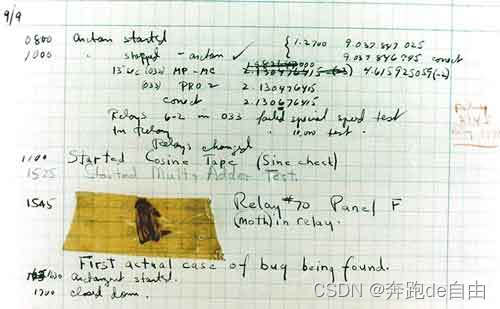 9/9
0800 antan started { 1.2700 9.037 847 025
1000 " stopped - antan ✓ 9.037 846 795 conect
13"uc (032) MP - MC 2.130476415 4.615925059(-2)
(033) PRO 2 2.130476415
conect 2.130676415
Relays 6-2 in 033 failed special speed test
in relay " 11,000 test.
Relays changed
1100 Started Cosine Tape (Sine check)
1525 Started Multi Adder Test.
1545 Relay #70 Panel F
(moth) in relay.
First actual case of bug being found.
1630 antangent started.
1700 closed down.
CSDN @奔跑de自由